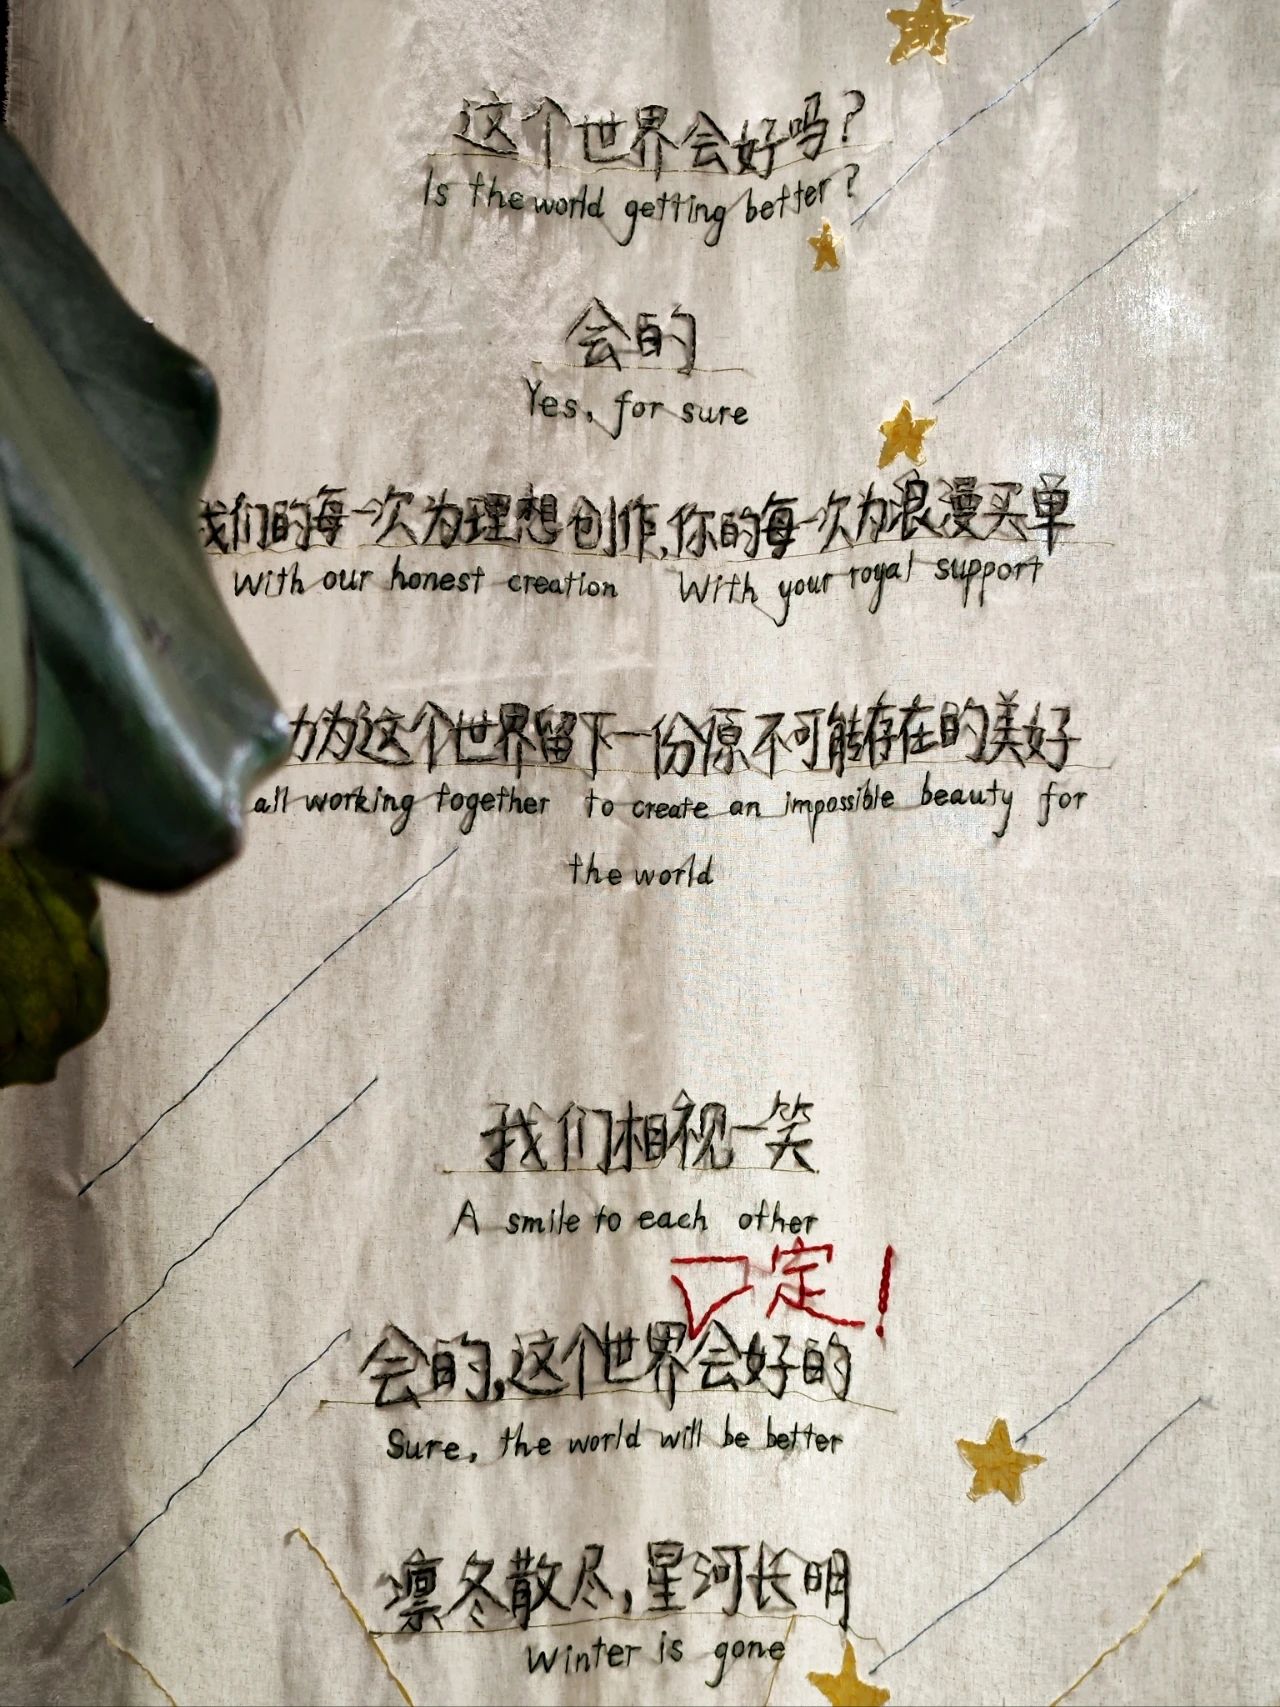 这个世界会好吗?
Is the world getting better?
会的
Yes, for sure
我们的每一次为理想创作,你的每一次为浪漫买单
With our honest creation With your royal support
力为这个世界留下一份原不可能存在的美好
all working together to create an impossible beauty for
the world
我们相视一笑
A smile to each other
一定!
会的,这个世界会好的
Sure, the world will be better
凛冬散尽,星河长明
Winter is gone